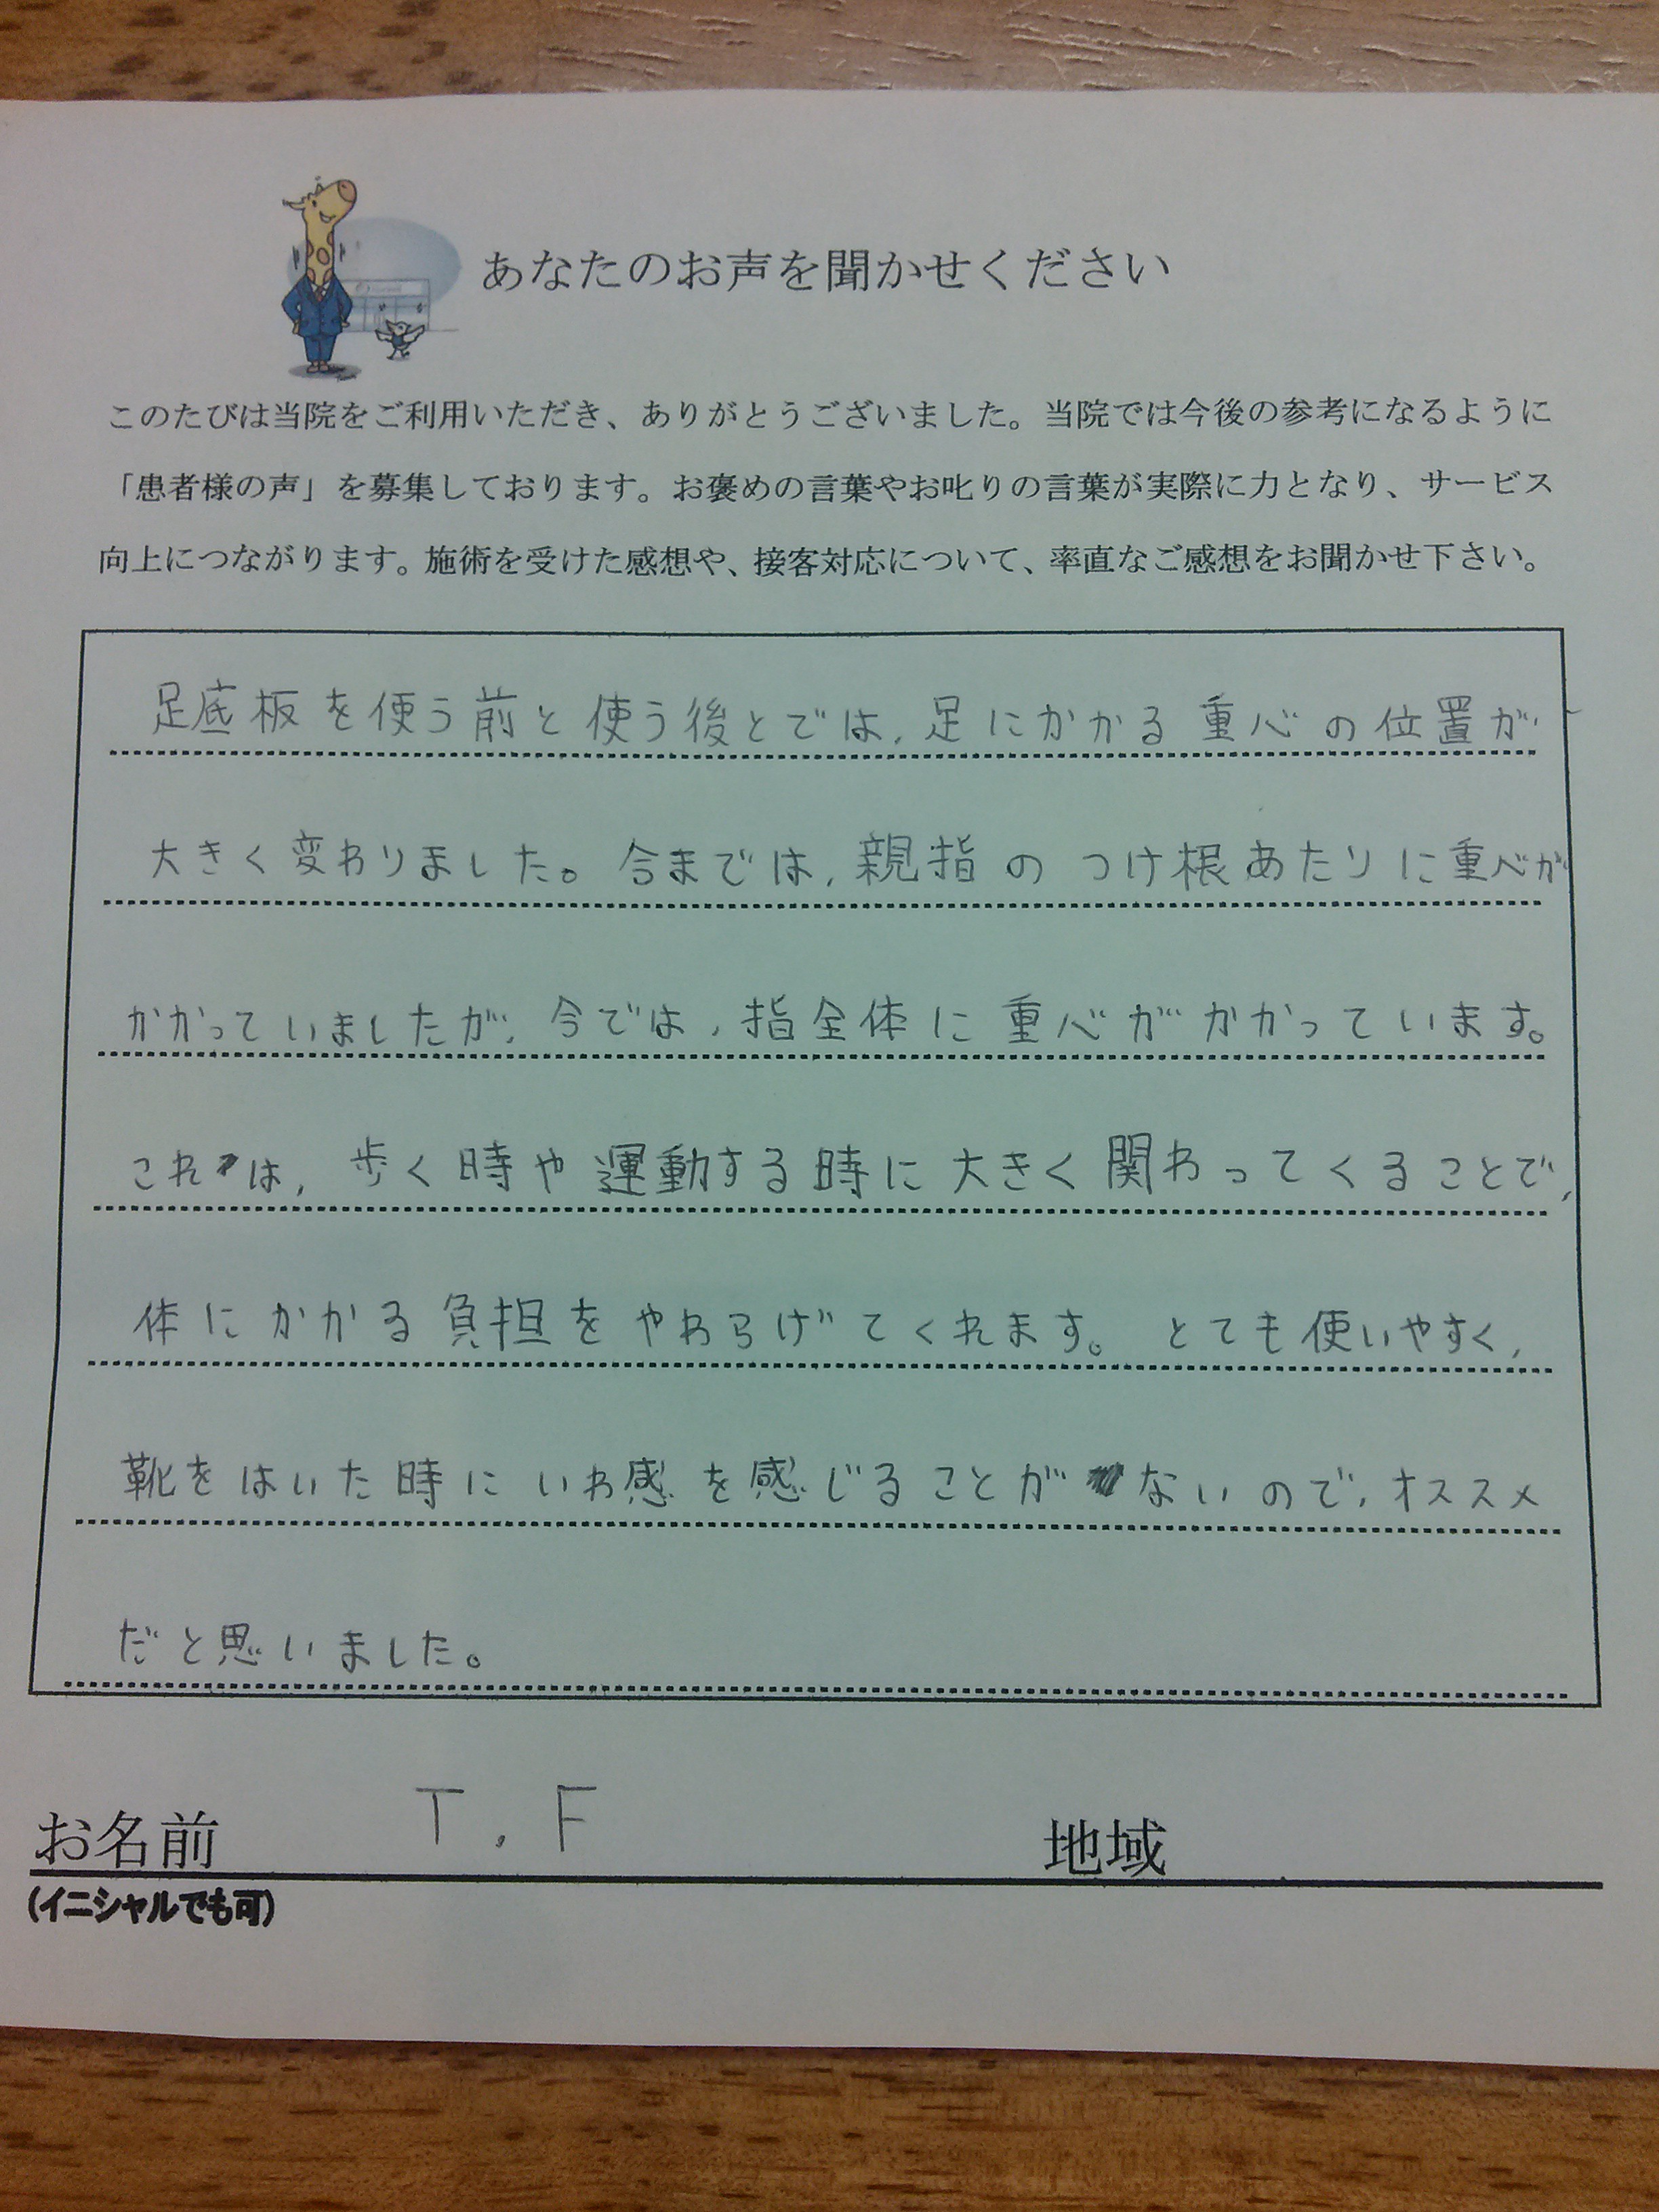 あなたのお声を聞かせください
このたびは当院をご利用いただき、ありがとうございました。当院では今後の参考になるように
「患者様の声」を募集しております。お褒めの言葉やお叱りの言葉が実際に力となり、サービス
向上につながります。施術を受けた感想や、接客対応について、率直なご感想をお聞かせ下さい。
足底板を使う前と使う後とでは、足にかかる重心の位置が
大きく変わりました。今までは、親指のつけ根あたりに重心が
かかっていましたが、今では、指全体に重心がかかっています。
これは、歩く時や運動する時に大きく関わってくることで、
体にかかる負担をやわらげてくれます。とても使いやすく、
靴をはいた時にいわ感を感じることがないので、オススメ
だと思いました。
お名前 T.F 地域
(イニシャルでも可)